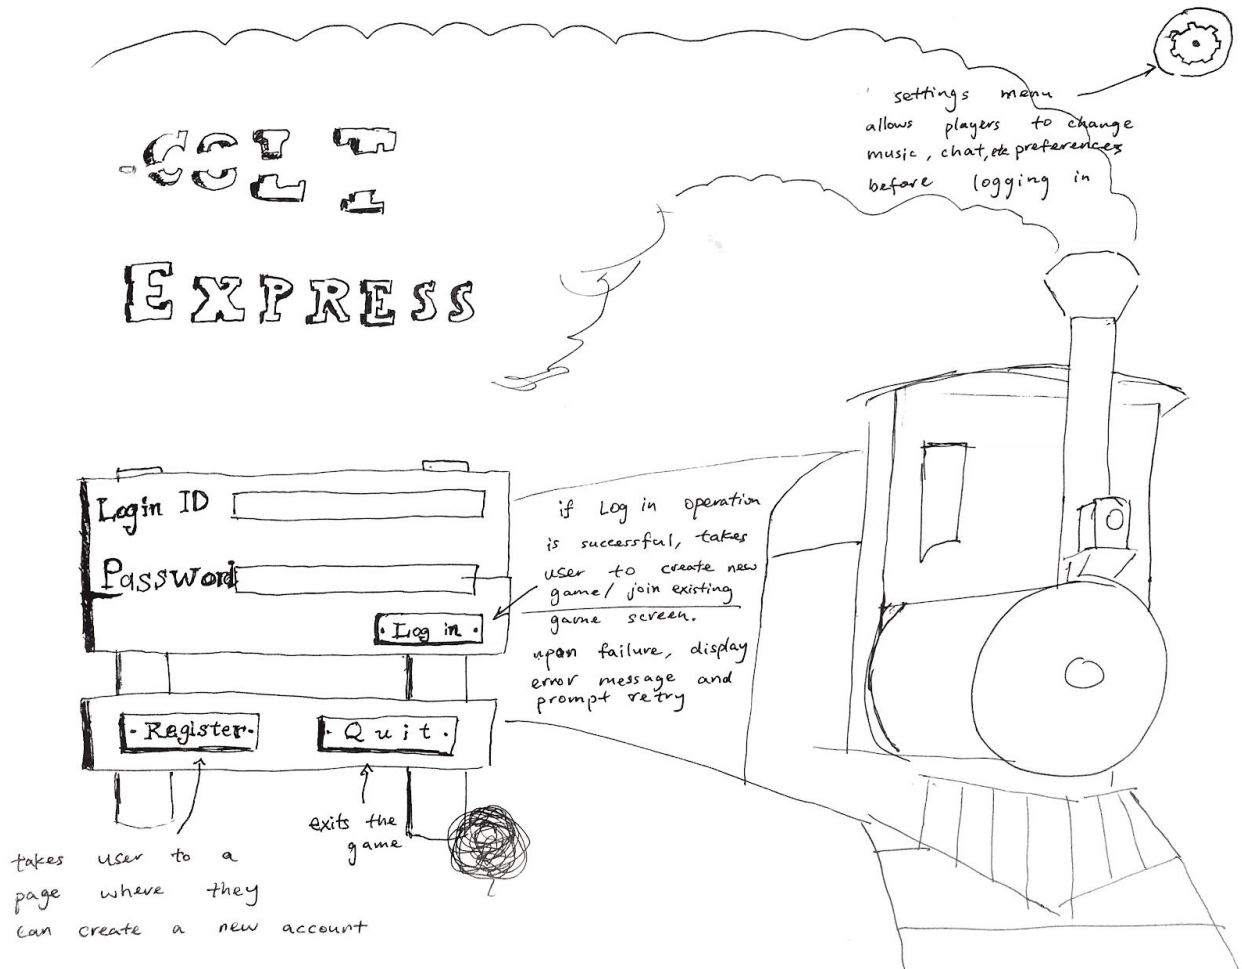 COLT
EXPRESS
settings menu
allows players to change
music, chat, etc preferences
before logging in
Login ID
Password
Log in
if Log in operation
is successful, takes
user to create new
game/ join existing
game screen.
upon failure, display
error message and
prompt retry
Register
Quit
exits the
game
takes user to a
page where they
can create a new account